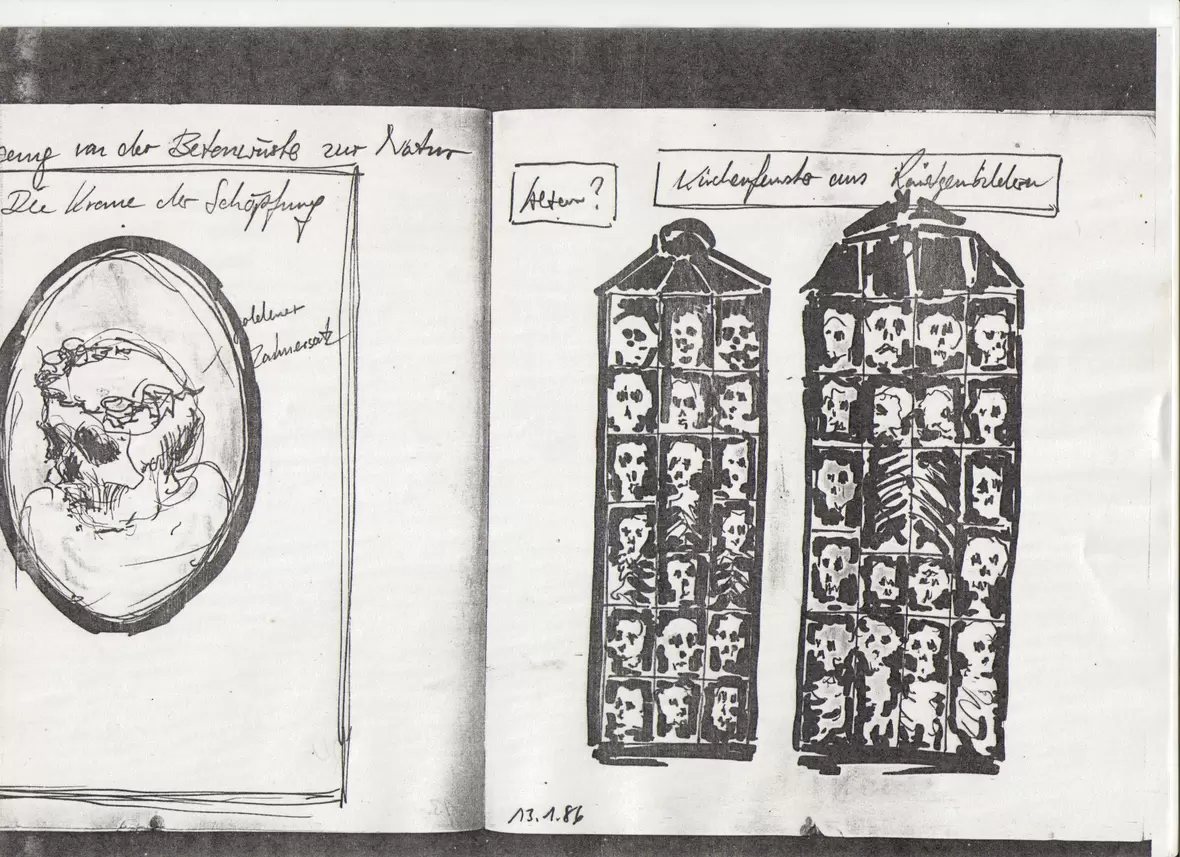 von der Betonwüste zur Natur
Die Krone der Schöpfung
goldener
Zahnersatz
Altern?
Kirchenfenster aus Röntgenbildern
13.1.86